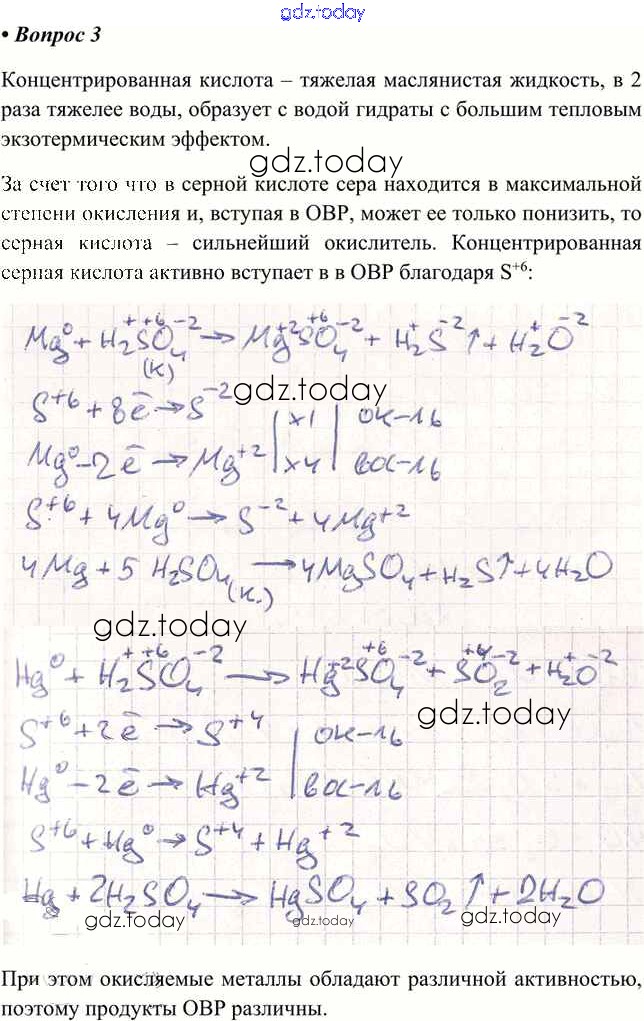 gdz.today
• Вопрос 3
Концентрированная кислота – тяжелая маслянистая жидкость, в 2
раза тяжелее воды, образует с водой гидраты с большим тепловым
экзотермическим эффектом.
gdz.today
За счет того что в серной кислоте сера находится в максимальной
степени окисления и, вступая в ОВР, может ее только понизить, то
серная кислота – сильнейший окислитель. Концентрированная
серная кислота активно вступает в в ОВР благодаря S⁺⁶:
Mg⁰ + H₂⁺S⁺⁶O₄⁻² (к) → Mg⁺²S⁺⁶O₄⁻² + H₂⁺S⁻²↑ + H₂⁺O⁻²
gdz.today
S⁺⁶ + 8ē → S⁻² | x1 | ок-ль
Mg⁰ - 2ē → Mg⁺² | x4 | вос-ль
S⁺⁶ + 4Mg⁰ → S⁻² + 4Mg⁺²
4Mg + 5 H₂SO₄ (к.) → 4MgSO₄ + H₂S↑ + 4H₂O
gdz.today
Hg⁰ + H₂⁺S⁺⁶O₄⁻² → Hg⁺²S⁺⁶O₄⁻² + S⁺⁴O₂⁻² + H₂⁺O⁻²
gdz.today
S⁺⁶ + 2ē → S⁺⁴ | ок-ль
Hg⁰ - 2ē → Hg⁺² | вос-ль
S⁺⁶ + Hg⁰ → S⁺⁴ + Hg⁺²
Hg + 2H₂SO₄ → HgSO₄ + SO₂↑ + 2H₂O
gdz.today gdz.today gdz.today
При этом окисляемые металлы обладают различной активностью,
поэтому продукты ОВР различны.